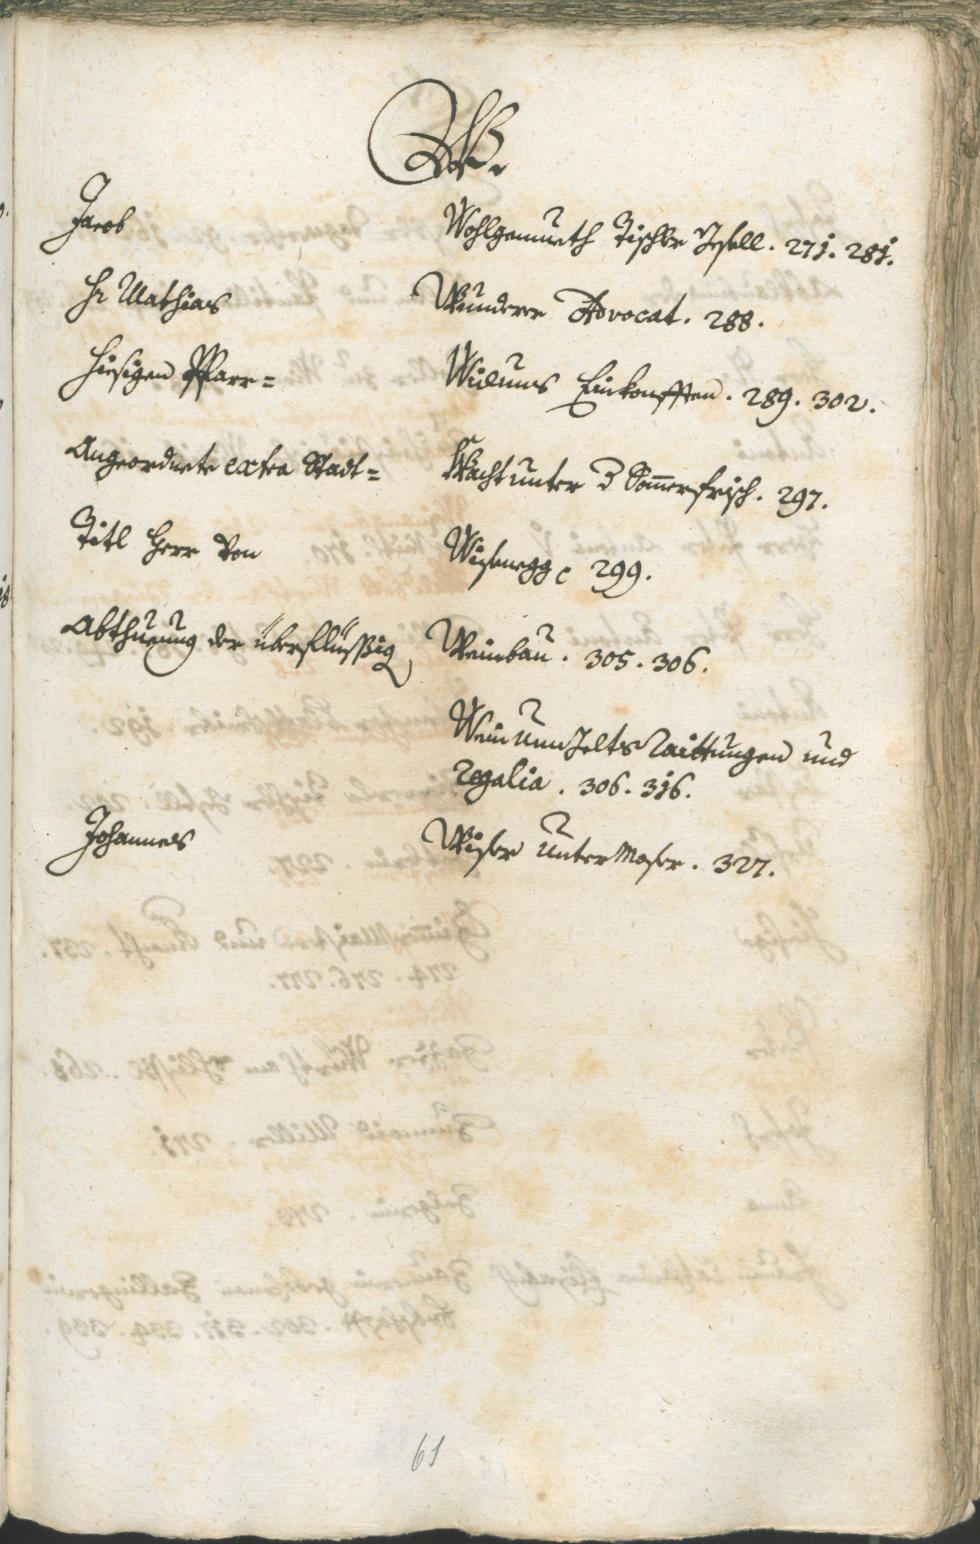 W.
Jacob Wohlgemueth Tischler Gsell. 271. 281.
Hr Mathias Wunderer Advocat. 288.
Hiesigen Pfarr= Widums Einkonfften. 289. 302.
Angeordnete extra Stadt= Wacht unter Somerfrisch. 297.
Titl Herr Von Wisenegg 299.
Abthuenung der überflüssig Weinbau. 305. 306.
Wein Umbgelts Raittungen und
Regalia. 306. 316.
Johannes Wiser Unter Moser. 327.
61